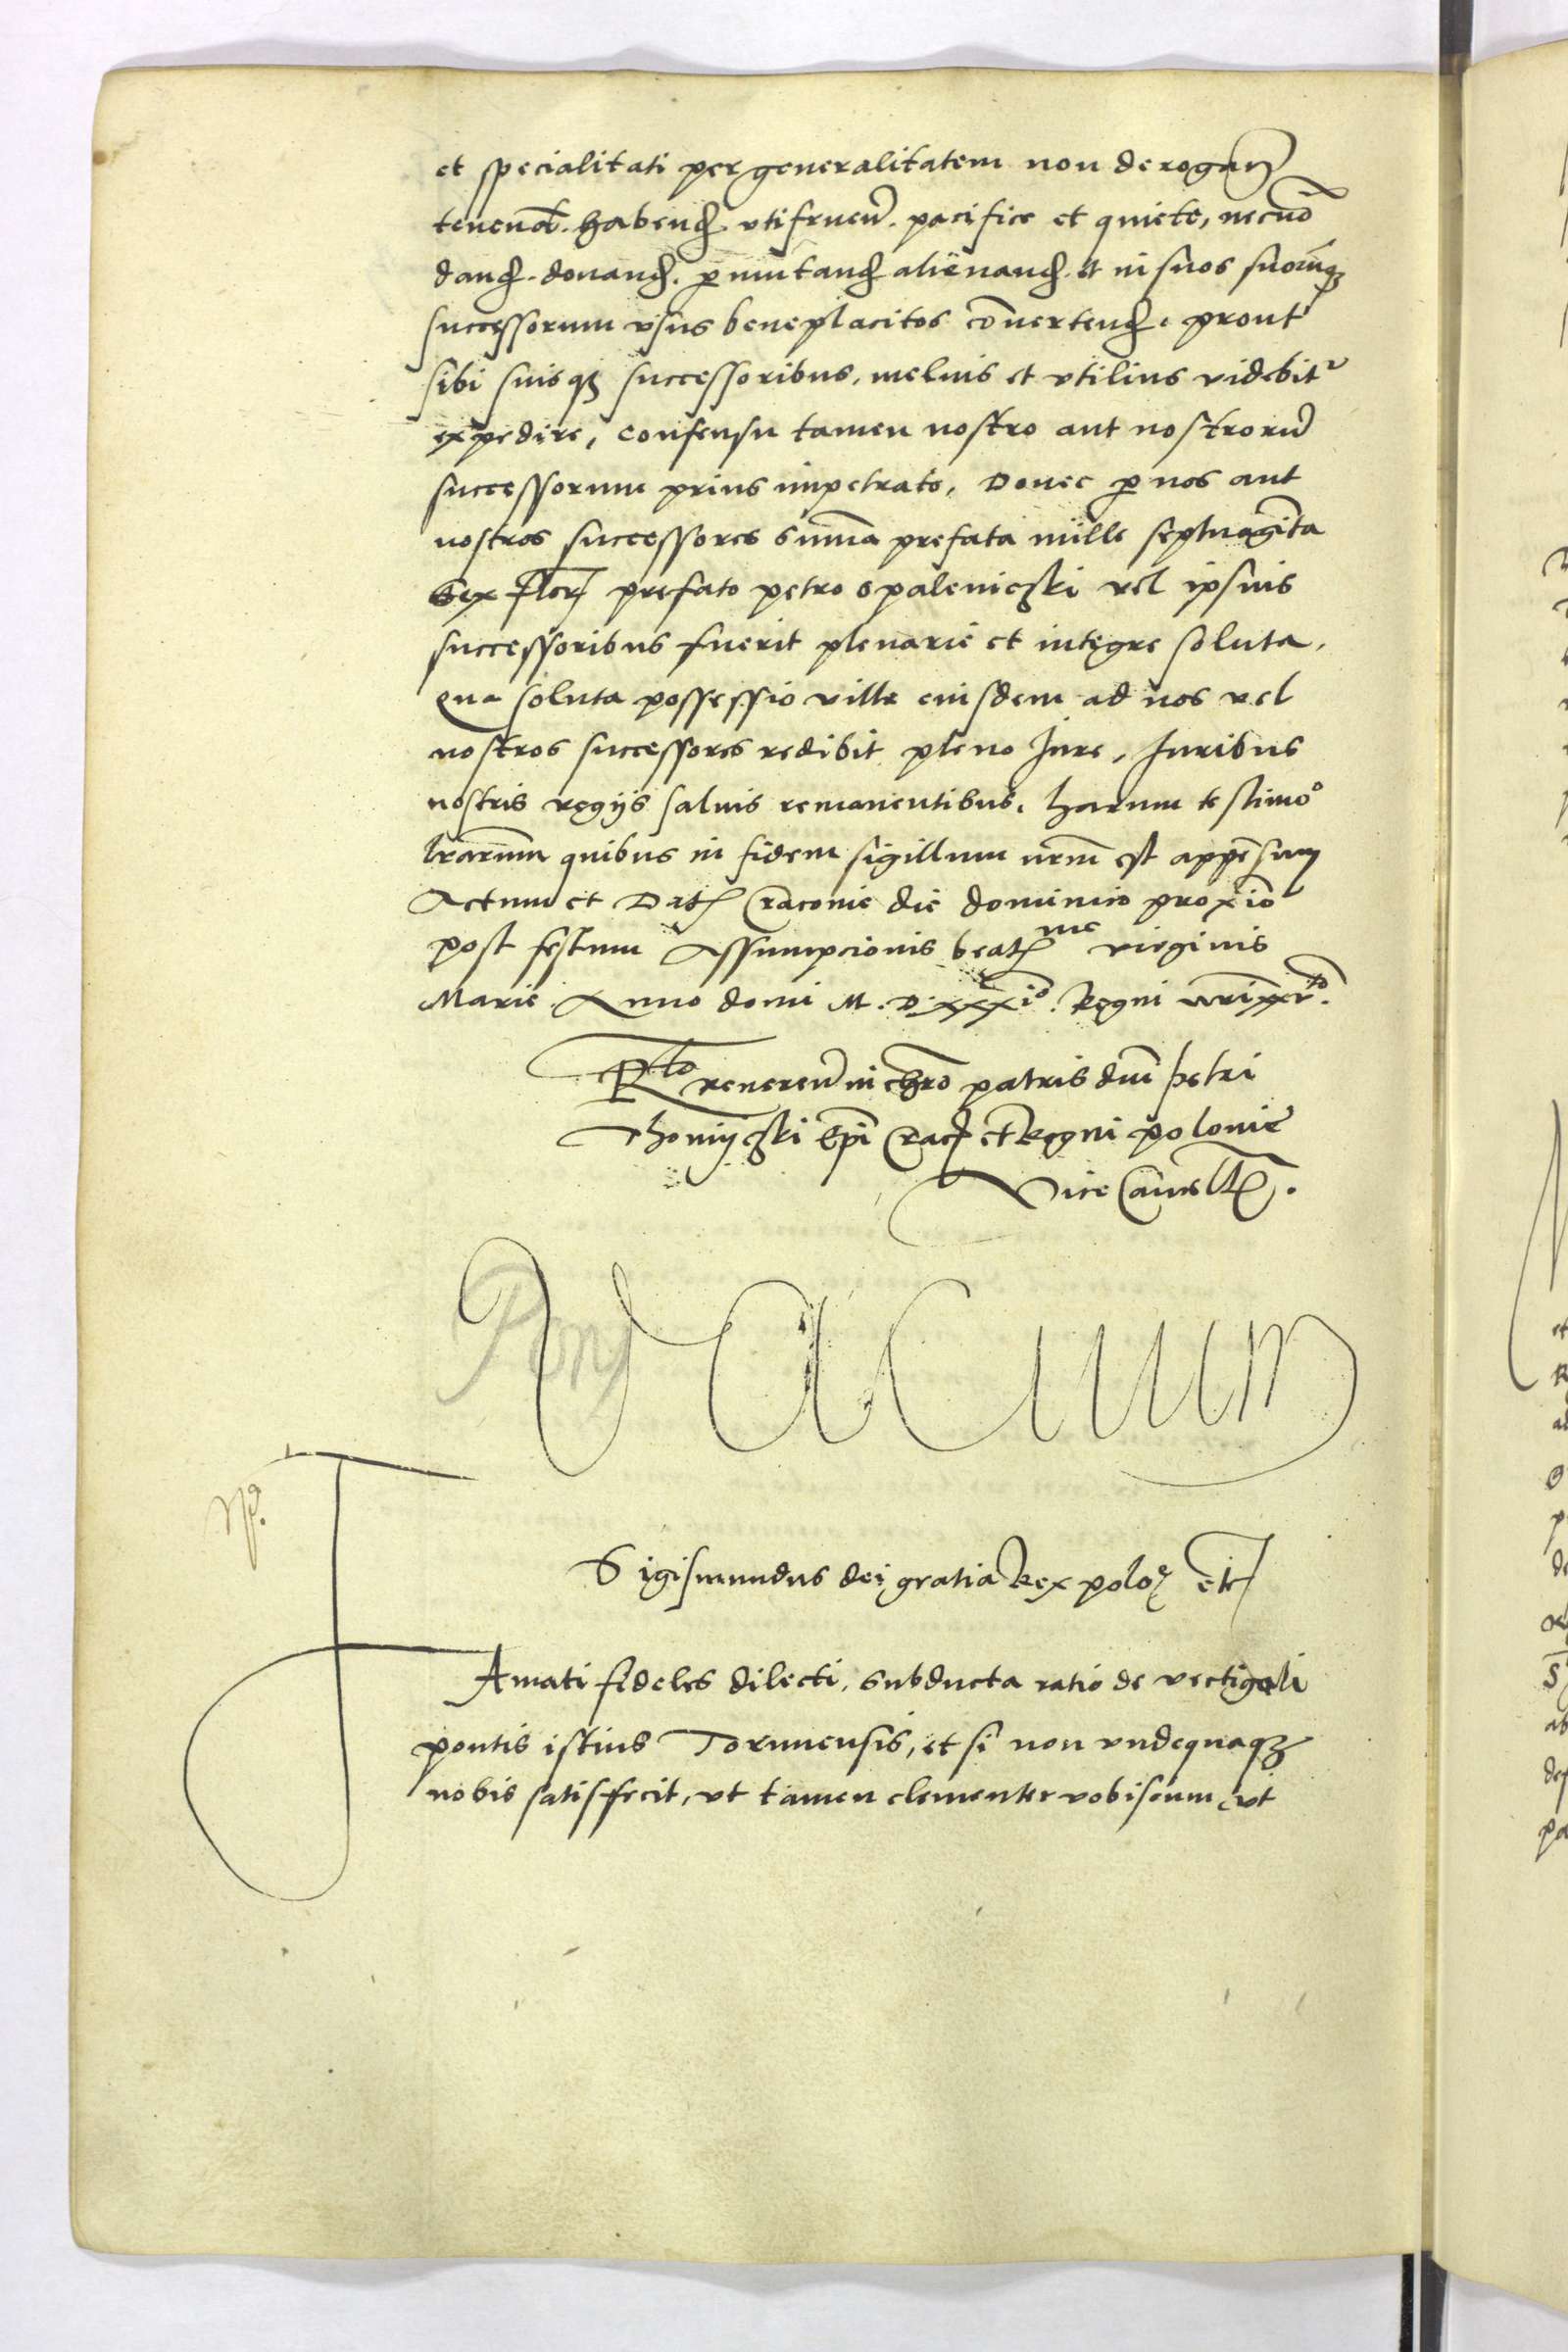 et specialitati per generalitatem non derogan̄
tenend. habend. vtifruen̄. pacifice et quiete, necnō
dand. donand. p̱mutand alienand. et in suos suorūq̨
successorum vsus beneplacitos cōuertend. prout
sibi suisq̨ successoribus, melius et vtilius videbit᷑
expedire, consensu tamen nostro aut nostrorū
successorum prius impetrato, Donec p̱ nos aut
nostros successores sum̄a prefata mille septuagīta
Sex flor prefato petro opalenieczki vel ipsius
successoribus fuerit plenarie et integre soluta.
qua soluta possessio ville eiusdem ad nos vel
nostros successores redibit pleno Iure, Iuribus
nostris regijs saluis remanentibus. harum testimoº
lr̄arum quibus in fidem sigillum nr̄m est appēsum
Actum et Dat Cracouie die dominico proxīo
post festum Assumpcionis beat᷑me virginis
Marie. Anno domi M. D. xxxiº. Regni nr̄i xxvto.
Rto reueren̄ in chr̄o patris dn̄i petri
Thomijczki Ep̄i Crac̄ et Regni polonie
Vice Cancell.
Vacuum
Sigismundus dei gratia Rex polo᷑ etc
Famati fideles dilecti, subducta ratio de vectigali
pontis istius Torunensis, et si non vndequaq̨
nobis satisfecit, vt tamen clementer vobiscum, vt